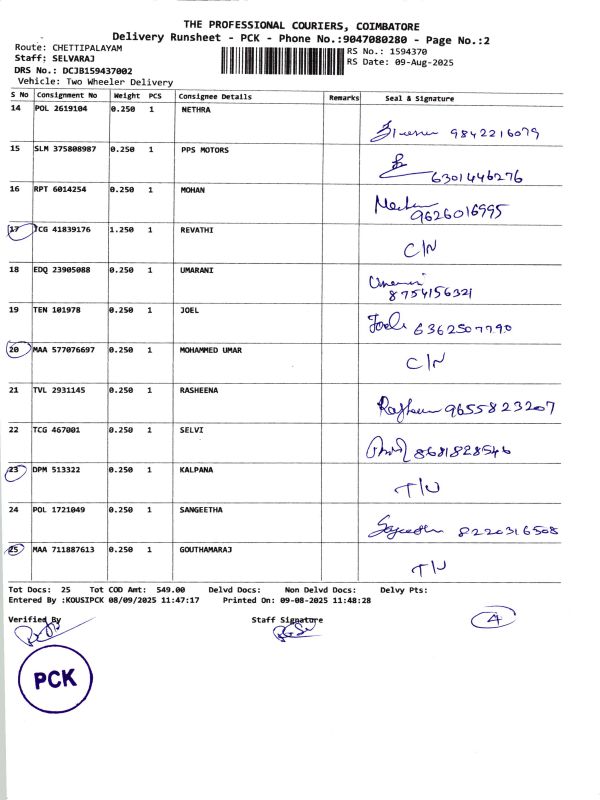 THE PROFESSIONAL COURIERS, COIMBATORE
Delivery Runsheet - PCK - Phone No.:9047080280 - Page No.:2
Route: CHETTIPALAYAM
RS No.: 1594370
Staff: SELVARAJ
RS Date: 09-Aug-2025
DRS No.: DCJB159437002
Vehicle: Two Wheeler Delivery
S No Consignment No Weight PCS Consignee Details Remarks Seal & Signature
14 POL 2619104 0.250 1 NETHRA
9842216079
15 SLM 375808987 0.250 1 PPS MOTORS
6301446276
16 RPT 6014254 0.250 1 MOHAN
9626016995
17 TCG 41839176 1.250 1 REVATHI
C/N
18 EDQ 23905088 0.250 1 UMARANI
8754156321
19 TEN 101978 0.250 1 JOEL
6362507790
20 MAA 577076697 0.250 1 MOHAMMED UMAR
C/N
21 TVL 2931145 0.250 1 RASHEENA
9655823207
22 TCG 467001 0.250 1 SELVI
8681828546
23 DPM 513322 0.250 1 KALPANA
T/U
24 POL 1721049 0.250 1 SANGEETHA
8220316508
25 MAA 711887613 0.250 1 GOUTHAMARAJ
T/U
Tot Docs: 25 Tot COD Amt: 549.00 Delvd Docs: Non Delvd Docs: Delvy Pts:
Entered By :KOUSIPCK 08/09/2025 11:47:17 Printed On: 09-08-2025 11:48:28
Verified By Staff Signature
PCK